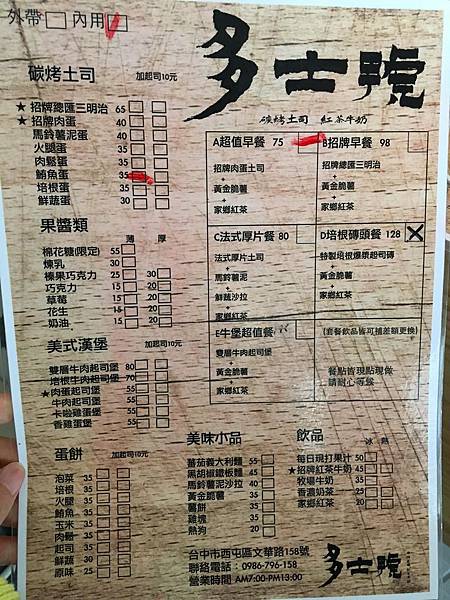 外帶 內用
多士號
碳烤土司 紅茶牛奶
碳烤土司 加起司10元
★招牌總匯三明治 65
★招牌肉蛋 40
馬鈴薯泥蛋 40
火腿蛋 35
肉鬆蛋 35
鮪魚蛋 35
培根蛋 35
鮮蔬蛋 30
果醬類 薄 厚
棉花糖(限定) 55
煉乳 30
榛果巧克力 25 30
巧克力 15 20
草莓 15 20
花生 15 20
奶油 15 20
美式漢堡 加起司10元
雙層牛肉起司堡 80
培根牛肉起司堡 70
★肉蛋起司堡 55
牛肉起司堡 55
卡啦雞蛋堡 55
香雞蛋堡 50
A超值早餐 75
招牌肉蛋土司
+
黃金脆薯
+
家鄉紅茶
B招牌早餐 98
招牌總匯三明治
+
黃金脆薯
+
家鄉紅茶
C法式厚片餐 80
法式厚片土司
+
馬鈴薯泥
+
鮮蔬沙拉
+
家鄉紅茶
D培根磚頭餐 128
特製培根爆漿起司磚
+
黃金脆薯
+
家鄉紅茶
E牛堡超值餐
雙層牛肉起司堡
+
黃金脆薯
+
家鄉紅茶
(套餐飲品皆可補差額更換)
餐點皆現點現做
請耐心等候
蛋餅 加起司10元
泡菜 35
培根 35
火腿 35
鮪魚 35
玉米 35
肉鬆 35
起司 35
鮮蔬 30
原味 25
美味小品
蕃茄義大利麵 55
黑胡椒鐵板麵 45
馬鈴薯泥沙拉 40
黃金脆薯 35
薯餅 35
雞塊 35
熱狗 20
飲品 冰 熱
每日現打果汁 50
★招牌紅茶牛奶 45
牧場牛奶 35
香濃奶茶 25
家鄉紅茶 20
台中市西屯區文華路158號
聯絡電話：0986-796-158
營業時間 AM7:00-PM13:00
多士號